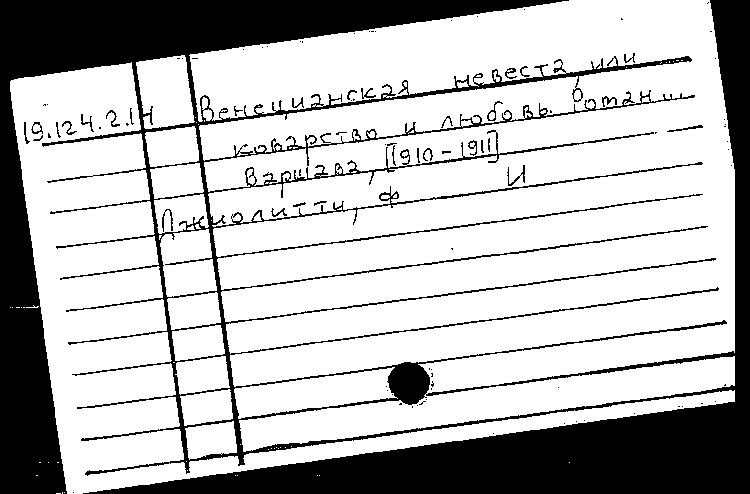 19.124.2.1Н Венецианская невеста, или
коварство и любовь. Роман...
Варшава, [1910-1911]
Джиолитти, Ф И